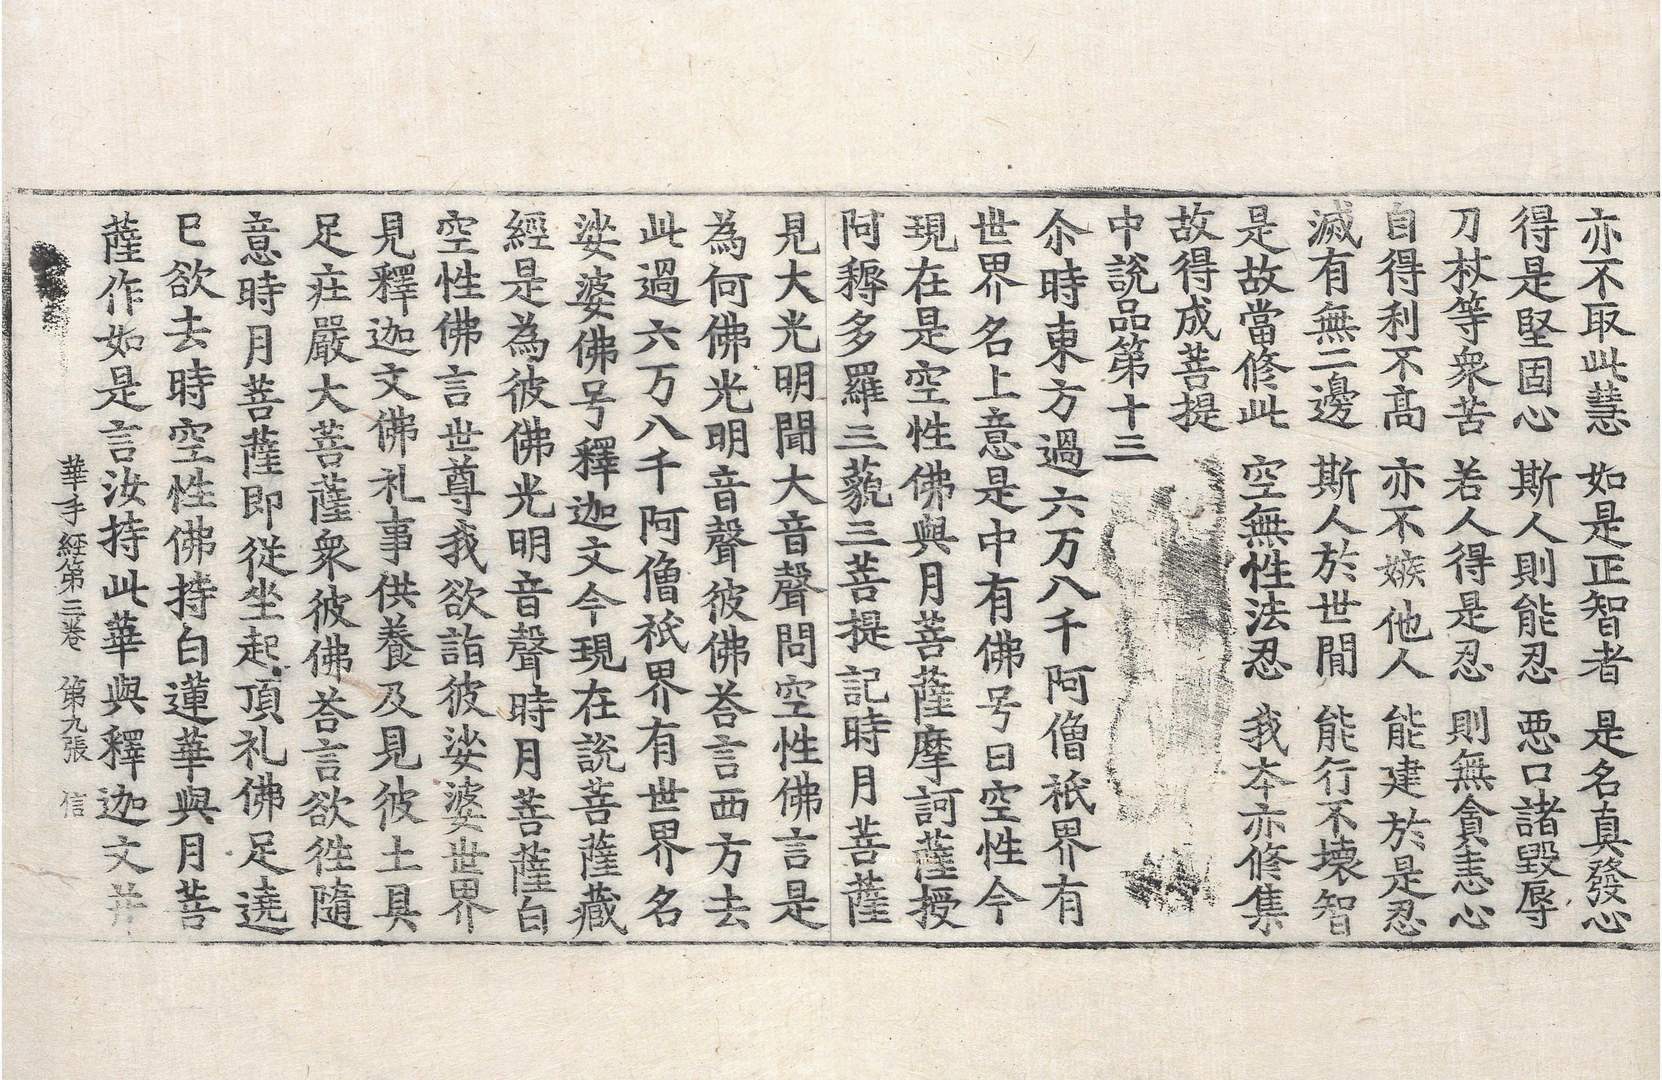 亦不取此慧　如是正智者　是名真發心
得是堅固心　斯人則能忍　惡口諸毀辱
刀杖等衆苦　若人得是忍　則無貪恚心
自得利不髙　亦不嫉他人　能建於是忍
滅有無二邊　斯人於世間　能行不壊智
是故當修此　空無性法忍　我夲亦修集
故得成菩提
中說品第十三
尒時東方過六万八千阿僧祇界有
世界名上意是中有佛号曰空性今
現在是空性佛與月菩薩摩訶薩授
阿耨多羅三藐三菩提記時月菩薩
見大光明聞大音聲問空性佛言是
為何佛光明音聲彼佛荅言西方去
此過六万八千阿僧祇界有世界名
娑婆佛号釋迦文今現在說菩薩藏
經是為彼佛光明音聲時月菩薩白
空性佛言世尊我欲詣彼娑婆世界
見釋迦文佛礼事供養及見彼土具
足莊嚴大菩薩衆彼佛荅言欲徃隨
意時月菩薩即從坐起頂礼佛足遶
已欲去時空性佛持白蓮華與月菩
薩作如是言汝持此華與釋迦文并
華手經第三卷　第九張　信